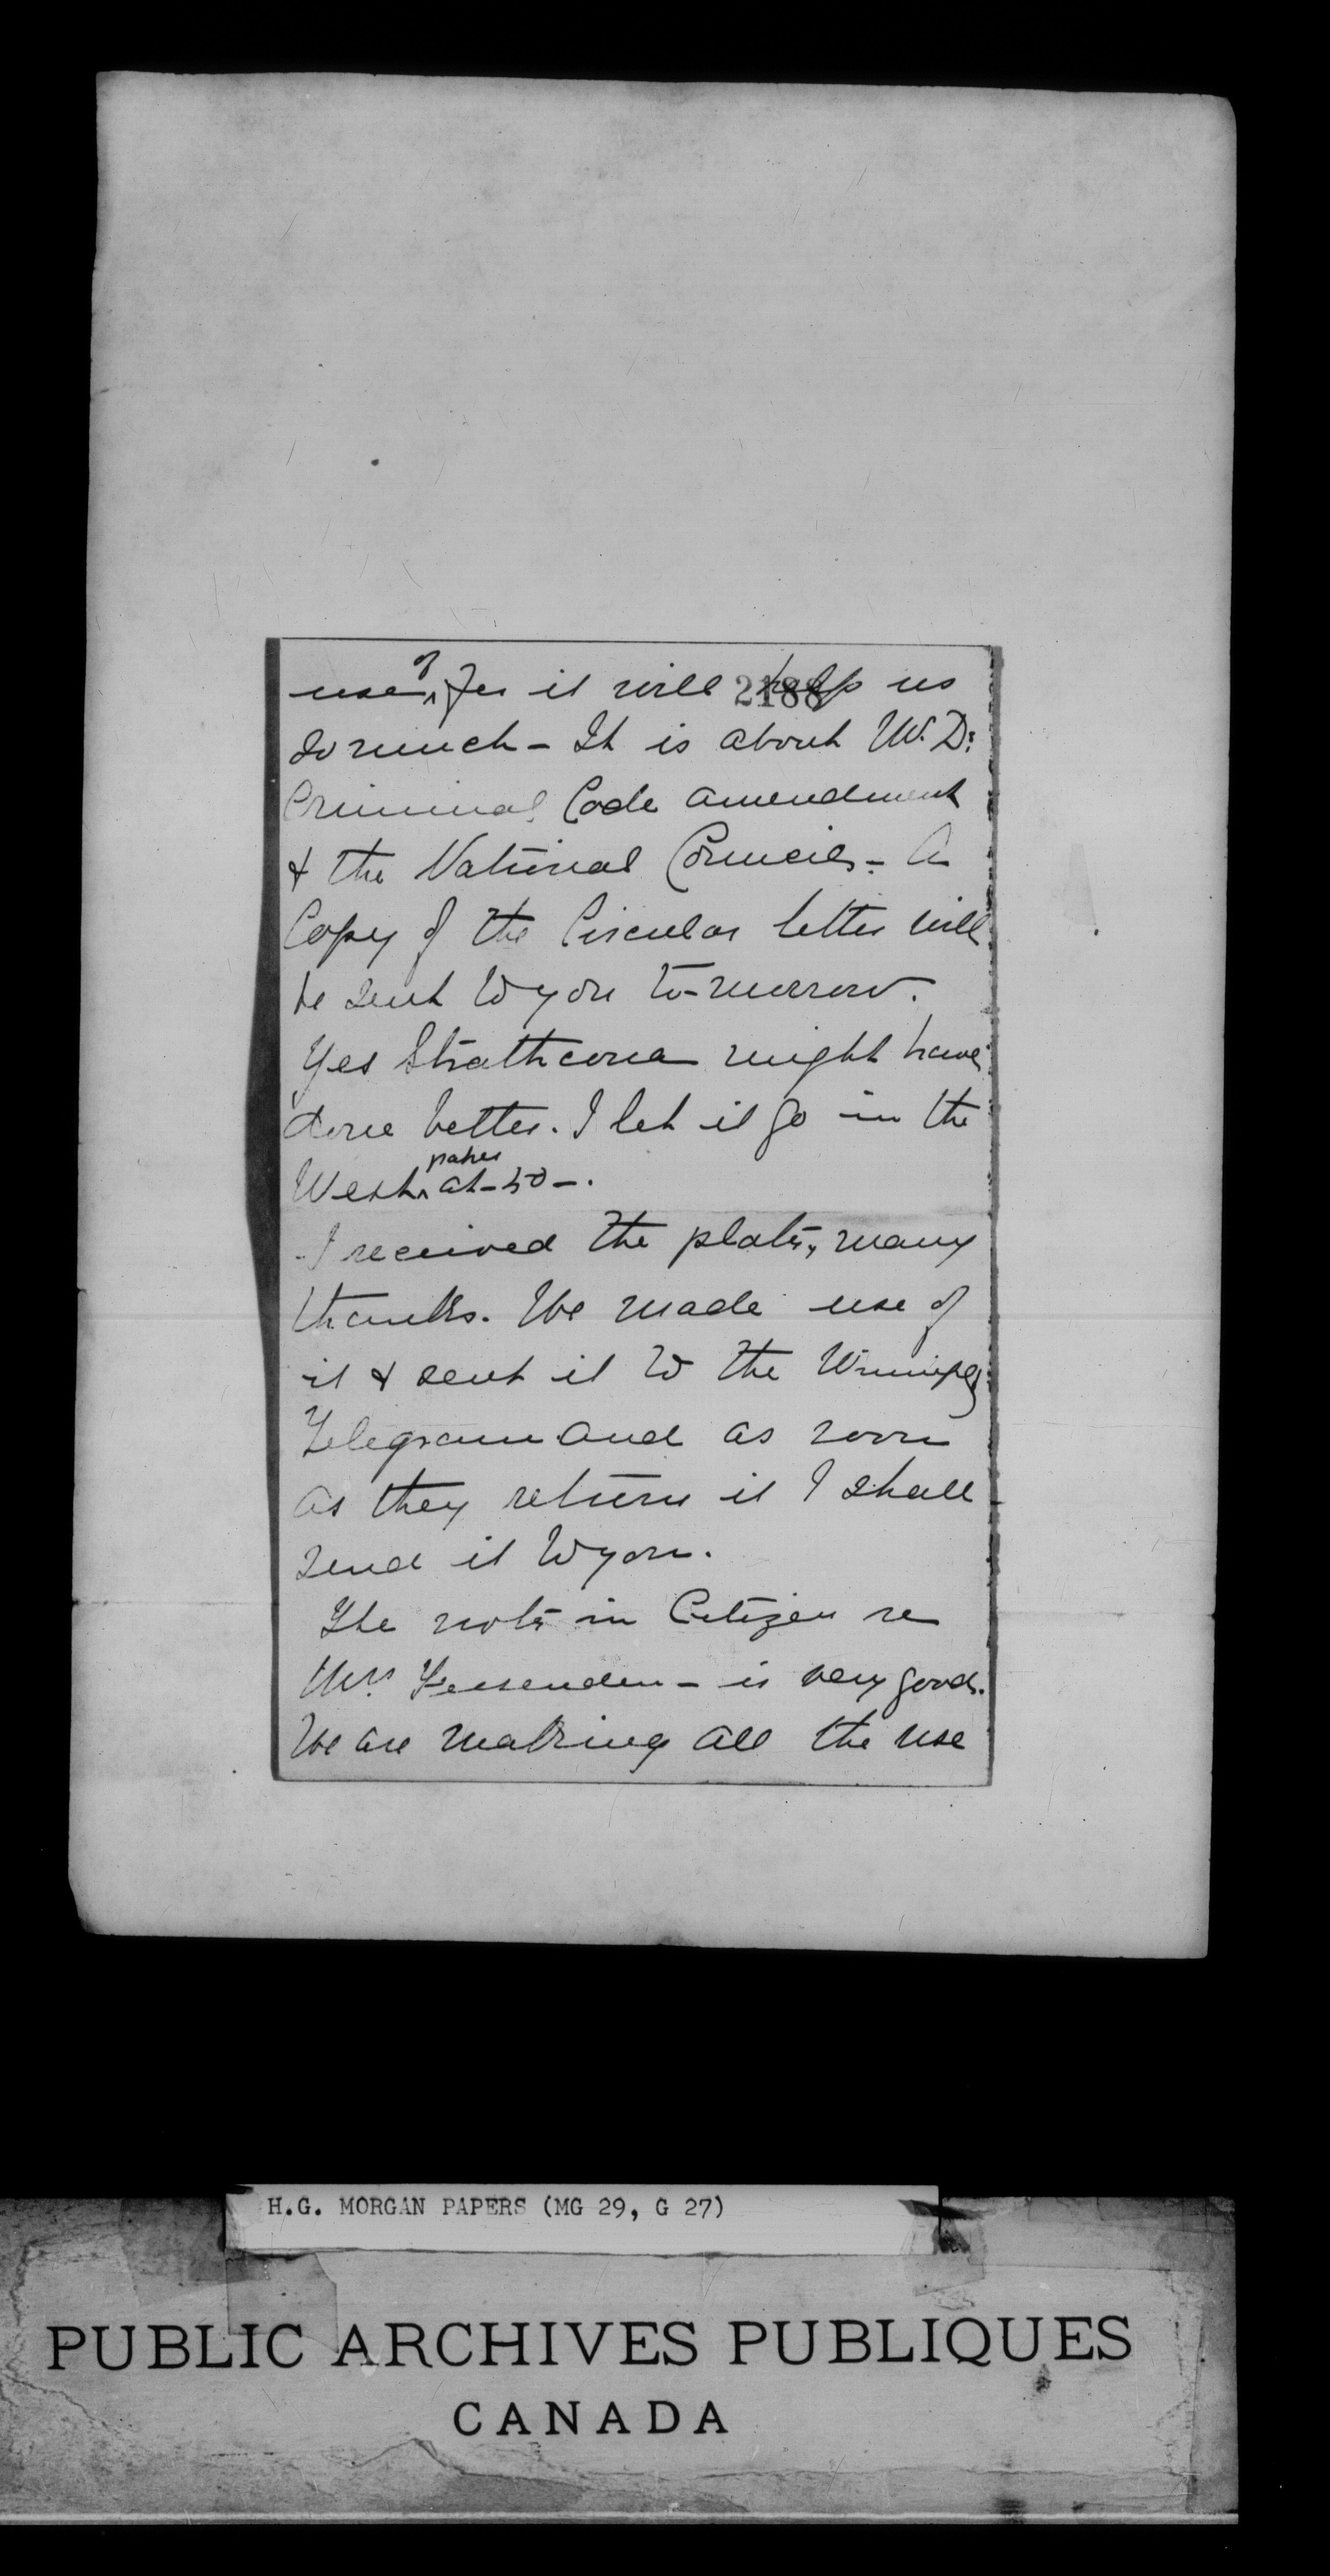 use ^of, for it will help us
2188
so much - It is about W. D:
Criminal Code amendment
& the National Councils - A
Copy of the Circular letter will
be sent to you to-morrow.
Yes Strathcona might have
done better. I let it go in the
West ^paper at - 50 - .
I received the plate, many
thanks. We made use of
it & sent it to the Winnipeg
Telegram and as soon
as they return it I shall
send it to you.
The note in Citizen re
Mrs. Fessenden - is very good.
We are making all the use
H.G. MORGAN PAPERS (MG 29, G 27)
PUBLIC ARCHIVES PUBLIQUES
CANADA